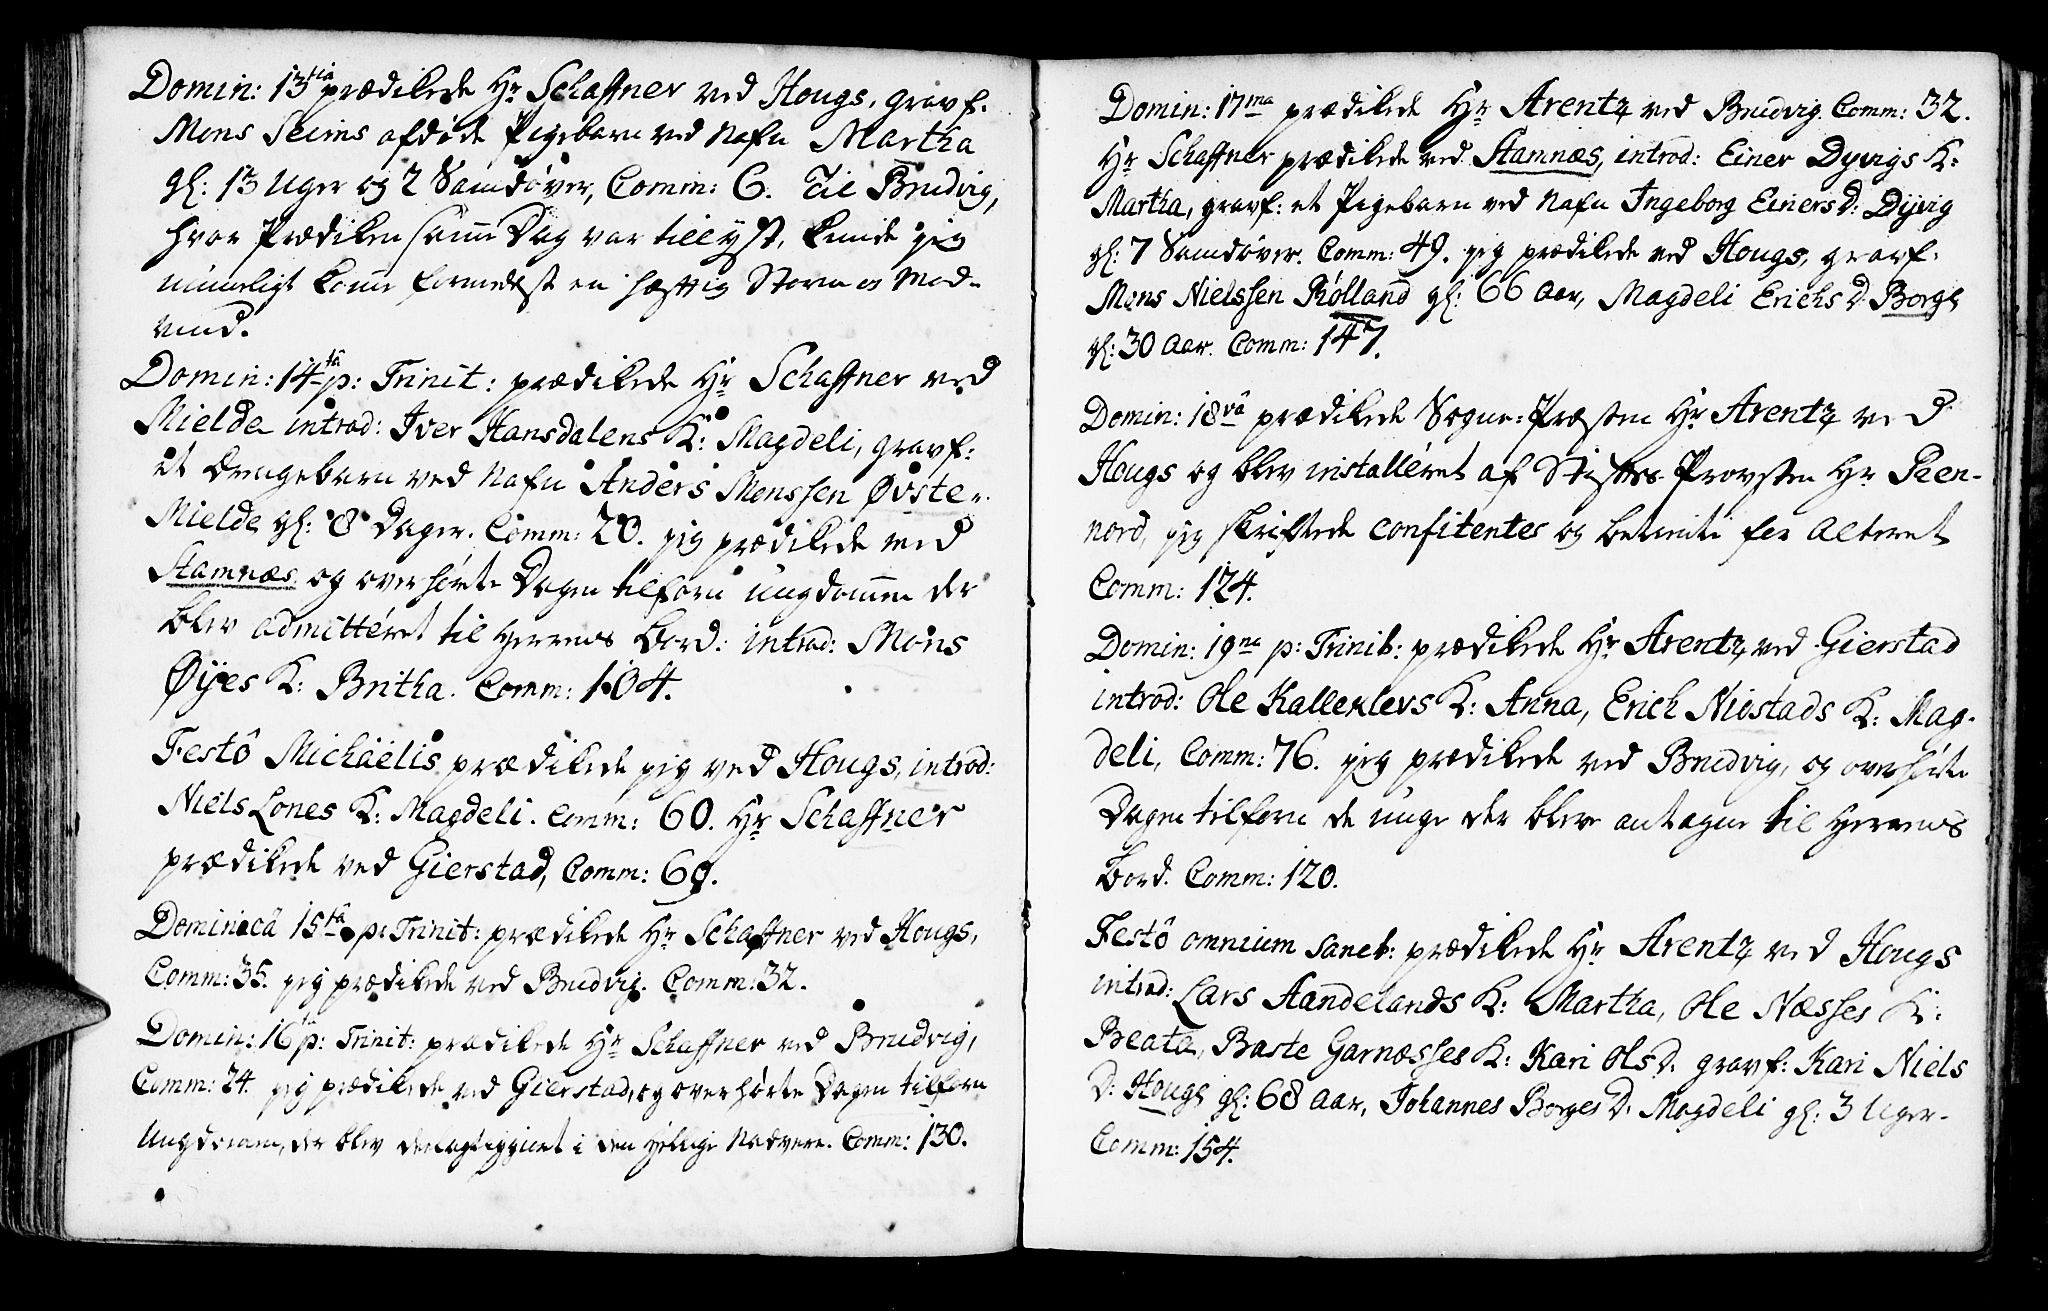 Domin: 13tia prædikede Hr Schaffner ved Hougs, gravf:
Mons Seims afdøde Pigebarn ved Nafn Martha
gl: 13 Uger og 2 Samdøver, Comm: 6. Til Brudvig,
hvor Prædiken samme Dag var tillyst, kunde jeg
umueligt komme formedelst en hæftig Storm og Mod-
vind.
Domin: 14ta p: Trinit: prædikede Hr Schaffner ved
Mielde introd: Iver Hansdalens K: Magdeli, gravf:
et Drengebarn ved Nafn Anders Monssen Øvste-
Mielde gl: 8 Dager. Comm: 20. jeg prædikede ved
Stamnæs og overhørte Dagen tilforn ungdommen der
blev admitteret til Herrens Bord: introd: Mons
Øyes K: Britha. Comm: 104.
Festô Michaëlis prædikede jeg ved Hougs, introd:
Niels Lones K: Magdeli. Comm: 60. Hr Schaffner
prædikede ved Gierstad, Comm: 69.
Dominicâ 15ta p: Trinit: prædikede Hr Schaffner ved Hougs,
Comm: 35. jeg prædikede ved Brudvig. Comm: 32.
Domin: 16ta p: Trinit: prædikede Hr Schaffner ved Brudvig,
Comm: 24. jeg prædikede ved Gierstad, og overhørte Dagen tilforn
Ungdomen, der blev deelagtiggiort i den hellige Nadvere. Comm: 130.
Domin: 17ma prædikede Hr Arentz ved Brudvig. Comm: 32.
Hr Schaffner prædikede ved Stamnæs, introd: Einer Dyvigs K:
Martha, gravf: et Pigebarn ved Nafn Ingeborg Einersd: Dyvig
gl: 7 Samdøver. Comm: 49. jeg prædikede ved Hougs, gravf:
Mons Nielssen Rølland gl: 66 Aar, Magdeli Erichs D: Borge
gl: 30 Aar. Comm: 147.
Domin: 18vâ prædikede Sogne-Præsten Hr Arentz ved
Hougs og blev installeret af Stifts-Provsten Hr Reen-
nord, jeg skriftede confitentes og betiente for Alteret
Comm: 124.
Domin: 19na p: Trinit: prædikede Hr Arentz ved Gierstad
introd: Ole Kalleklevs K: Anna, Erich Niostads K: Mag-
deli, Comm: 76. jeg prædikede ved Brudvig, og overhørte
Dagen tilforn de unge der blev antagne til Herrens
Bord. Comm: 120.
Festô omnium sanct: prædikede Hr Arentz ved Hougs
introd: Lars Aandelands K: Martha, Ole Næsses K:
Beata, Baste Garnæsses K: Kari Ols D. gravf: Kari Niels
D: Hougs gl: 68 Aar, Johannes Borges D. Magdeli gl: 3 Uger-
Comm: 154.